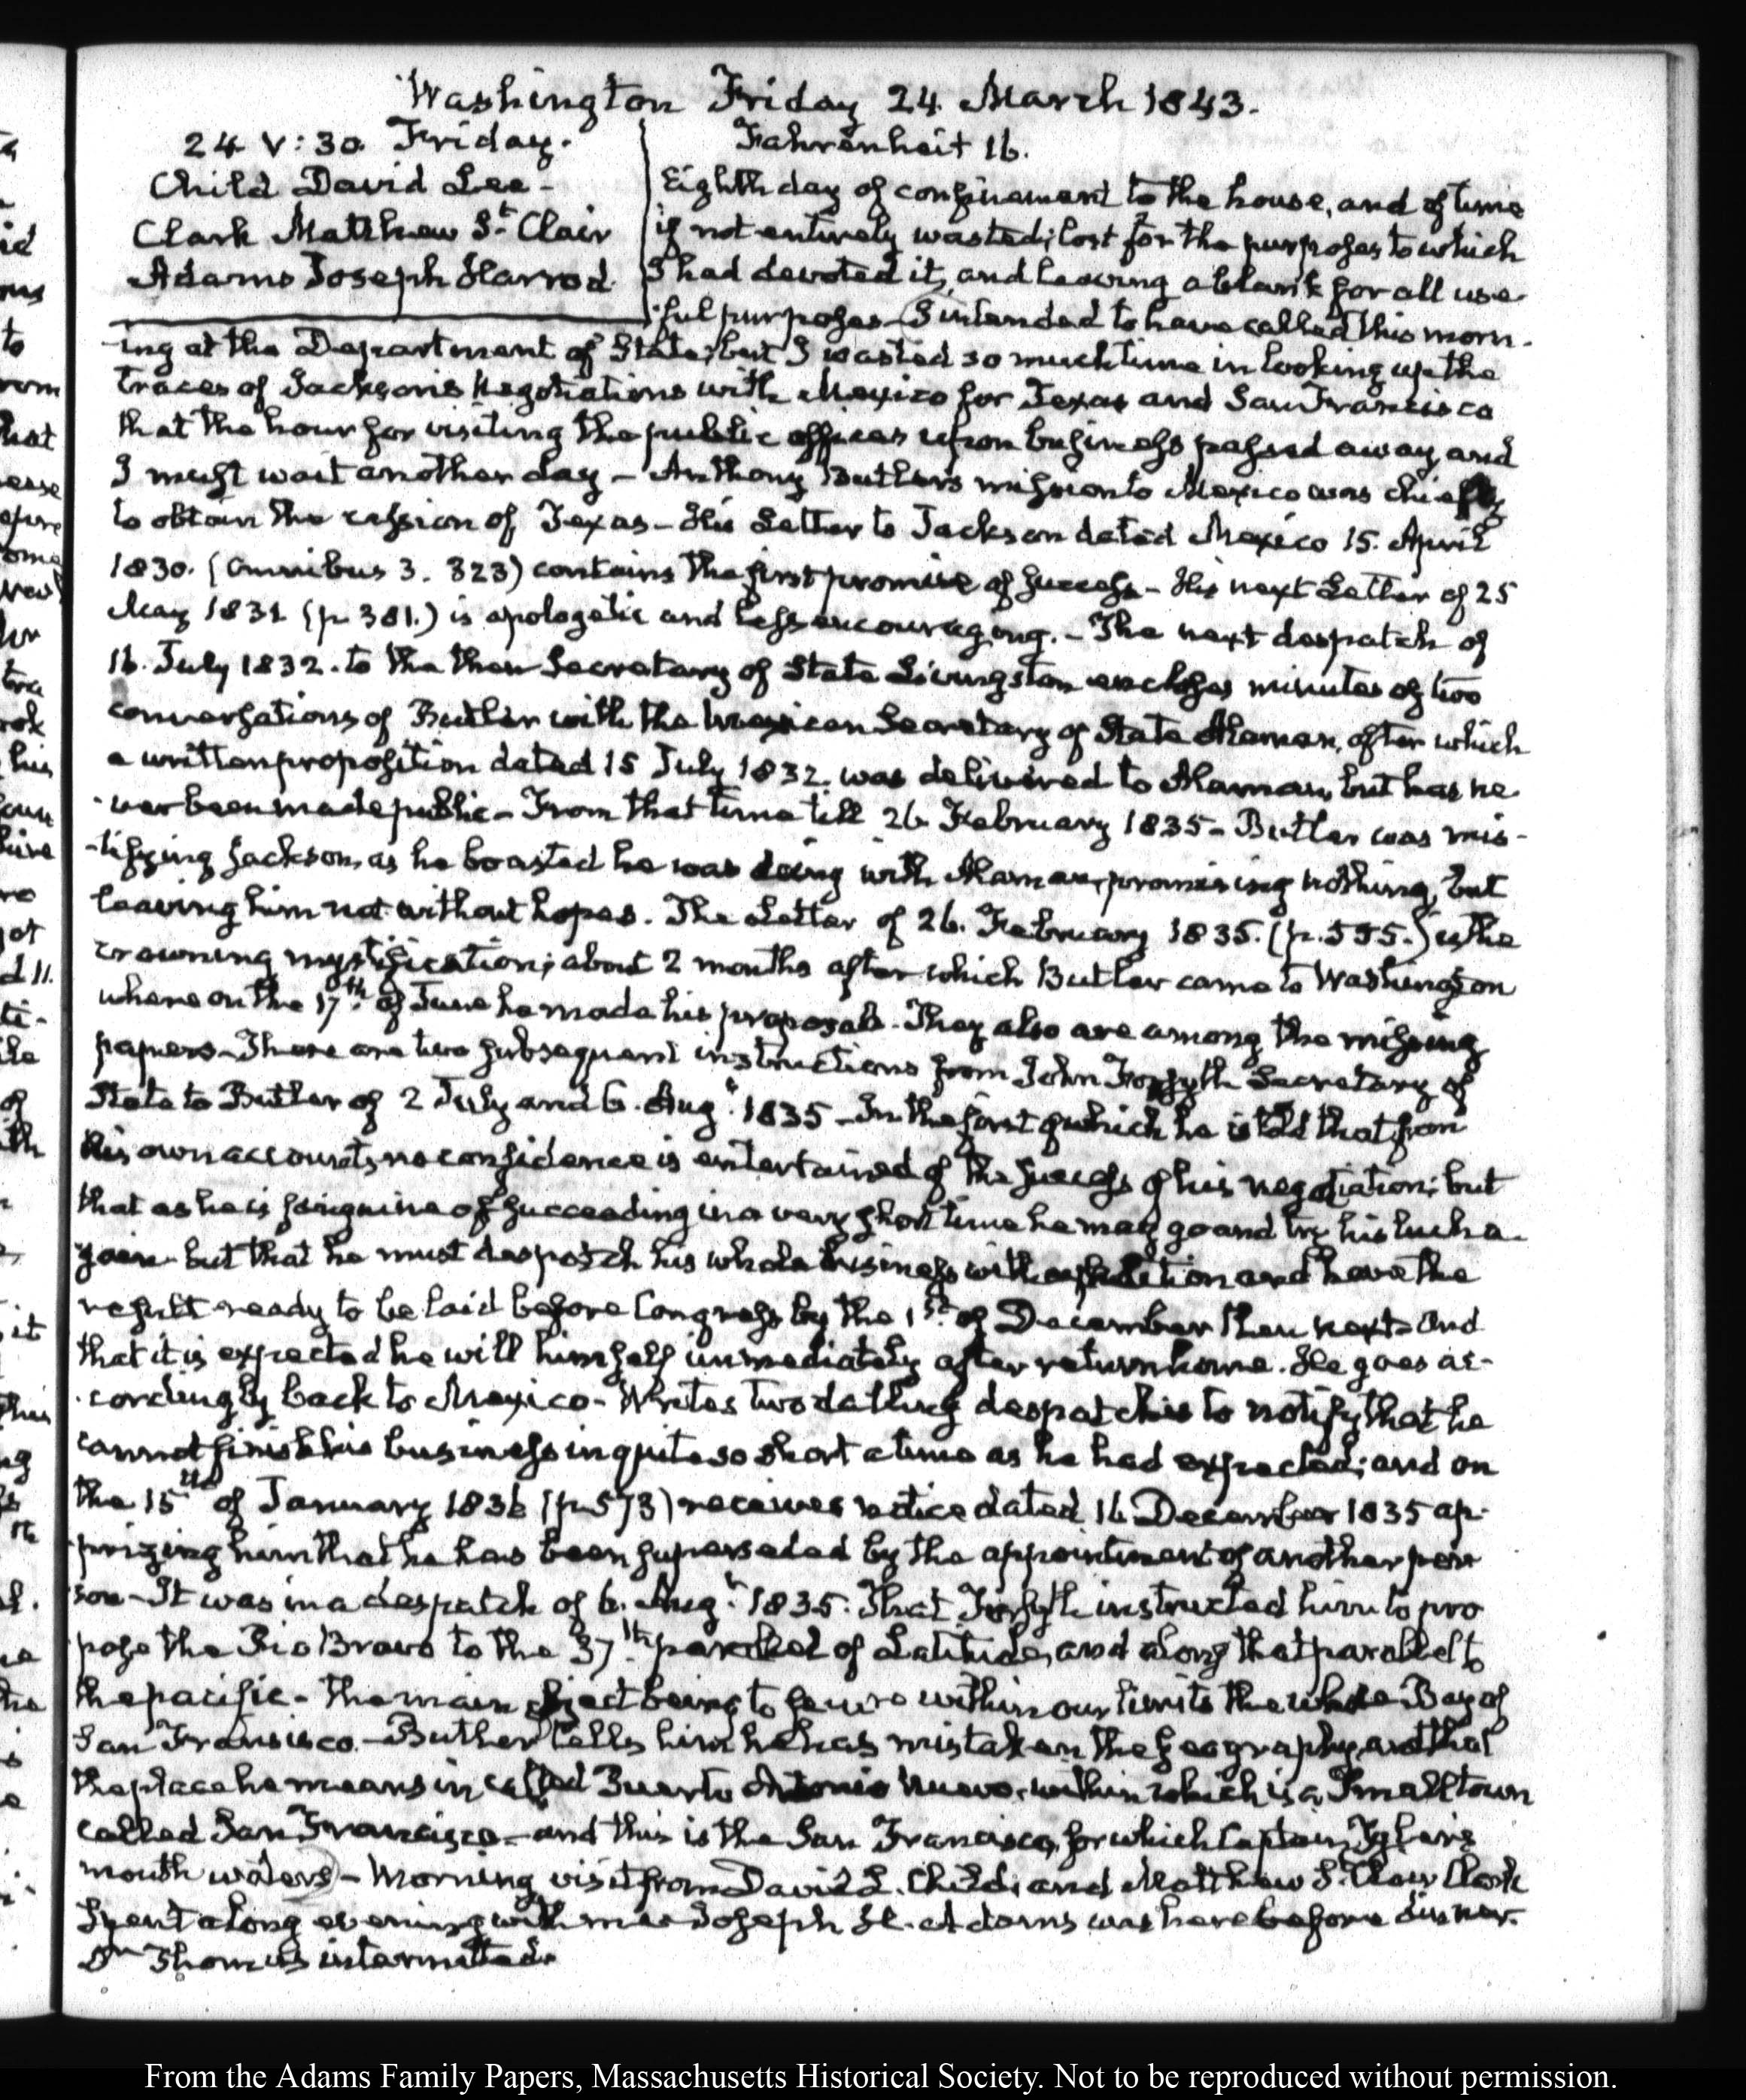 Washington Friday 24. March 1843.
24 V:30. Friday.
Child David Lee -
Clark Matthew St. Clair
Adams Joseph Harrod.
Fahrenheit 16.
Eighth day of confinement to the house, and of time
if not entirely wasted; lost for the purposes to which
I had devoted it, and leaving a blank for all use-
ful purposes - I intended to have called this morn-
-ing at the Department of State; but I wasted so much time in looking up the
traces of Jackson's Negotiations with Mexico for Texas and San Francisco
that the hour for visiting the public offices upon business passed away, and
I must wait another day - Anthony Butler's mission to Mexico was chiefly
to obtain the cession of Texas - His Letter to Jackson dated Mexico 15. April
1830. (Omnibus 3. 323) contains the first promise of success - His next Letter of 25
May 1831 (p 381.) is apologetic and less encouraging. - The next despatch of
16. July 1832. to the then Secretary of State Livingston encloses minutes of two
conversations of Butler with the Mexican Secretary of State Alaman, after which
a written proposition dated 15 July 1832. was delivered to Alaman, but has ne-
-ver been made public - From that time till 26 February 1835 - Butler was mis-
-tifying Jackson, as he boasted he was doing with Alaman, promising nothing, but
leaving him not without hopes. The Letter of 26. February 1835. (p. 555.) is the
crowning mystification; about 2 months after which Butler came to Washington
where on the 17th. of June he made his proposals. They also are among the missing
papers - There are two subsequent instructions from John Forsyth Secretary of
State to Butler of 2 July and 6. Augt. 1835 - In the first of which he is told that from
his own accounts, no confidence is entertained of the success of his negotiation; but
that as he is sanguine of succeeding in a very short time he may go and try his luck a-
gain - but that he must despatch his whole business with expedition and have the
result ready to be laid before Congress by the 1st. of December then next - And
that it is expected he will himself immediately after return home. He goes ac-
-cordingly back to Mexico - Writes two despatches to notify that he
cannot finish his business in quite so short a time as he had expected; and on
the 15th of January 1836 (p 573) receives notice dated 16 December 1835 ap-
prizing him that he has been superseded by the appointment of another per
son - It was in a despatch of 6. Augt. 1835. That Forsyth instructed him to pro
pose the Rio Bravo to the 37th. parallel of Latitude, and along that parallel to
the pacific - the main object being to secure within our limits the whole Bay of
San Fransisco. - Buther tells him he has mistaken the geography, and that
the place he means in called Puerto Antonio Nuevo, within which is a Small town
called San Francisco - and this is the San Francisco, for which Captain
mouth waters - Morning visit from David L. Child, and Matthew St. Clair Clark
spent a long evening with me - Joseph H. Adams was here before dinner.
Dr Thomas intermitted.
From the Adams Family Papers, Massachusetts Historical Society. Not to be reproduced without permission.